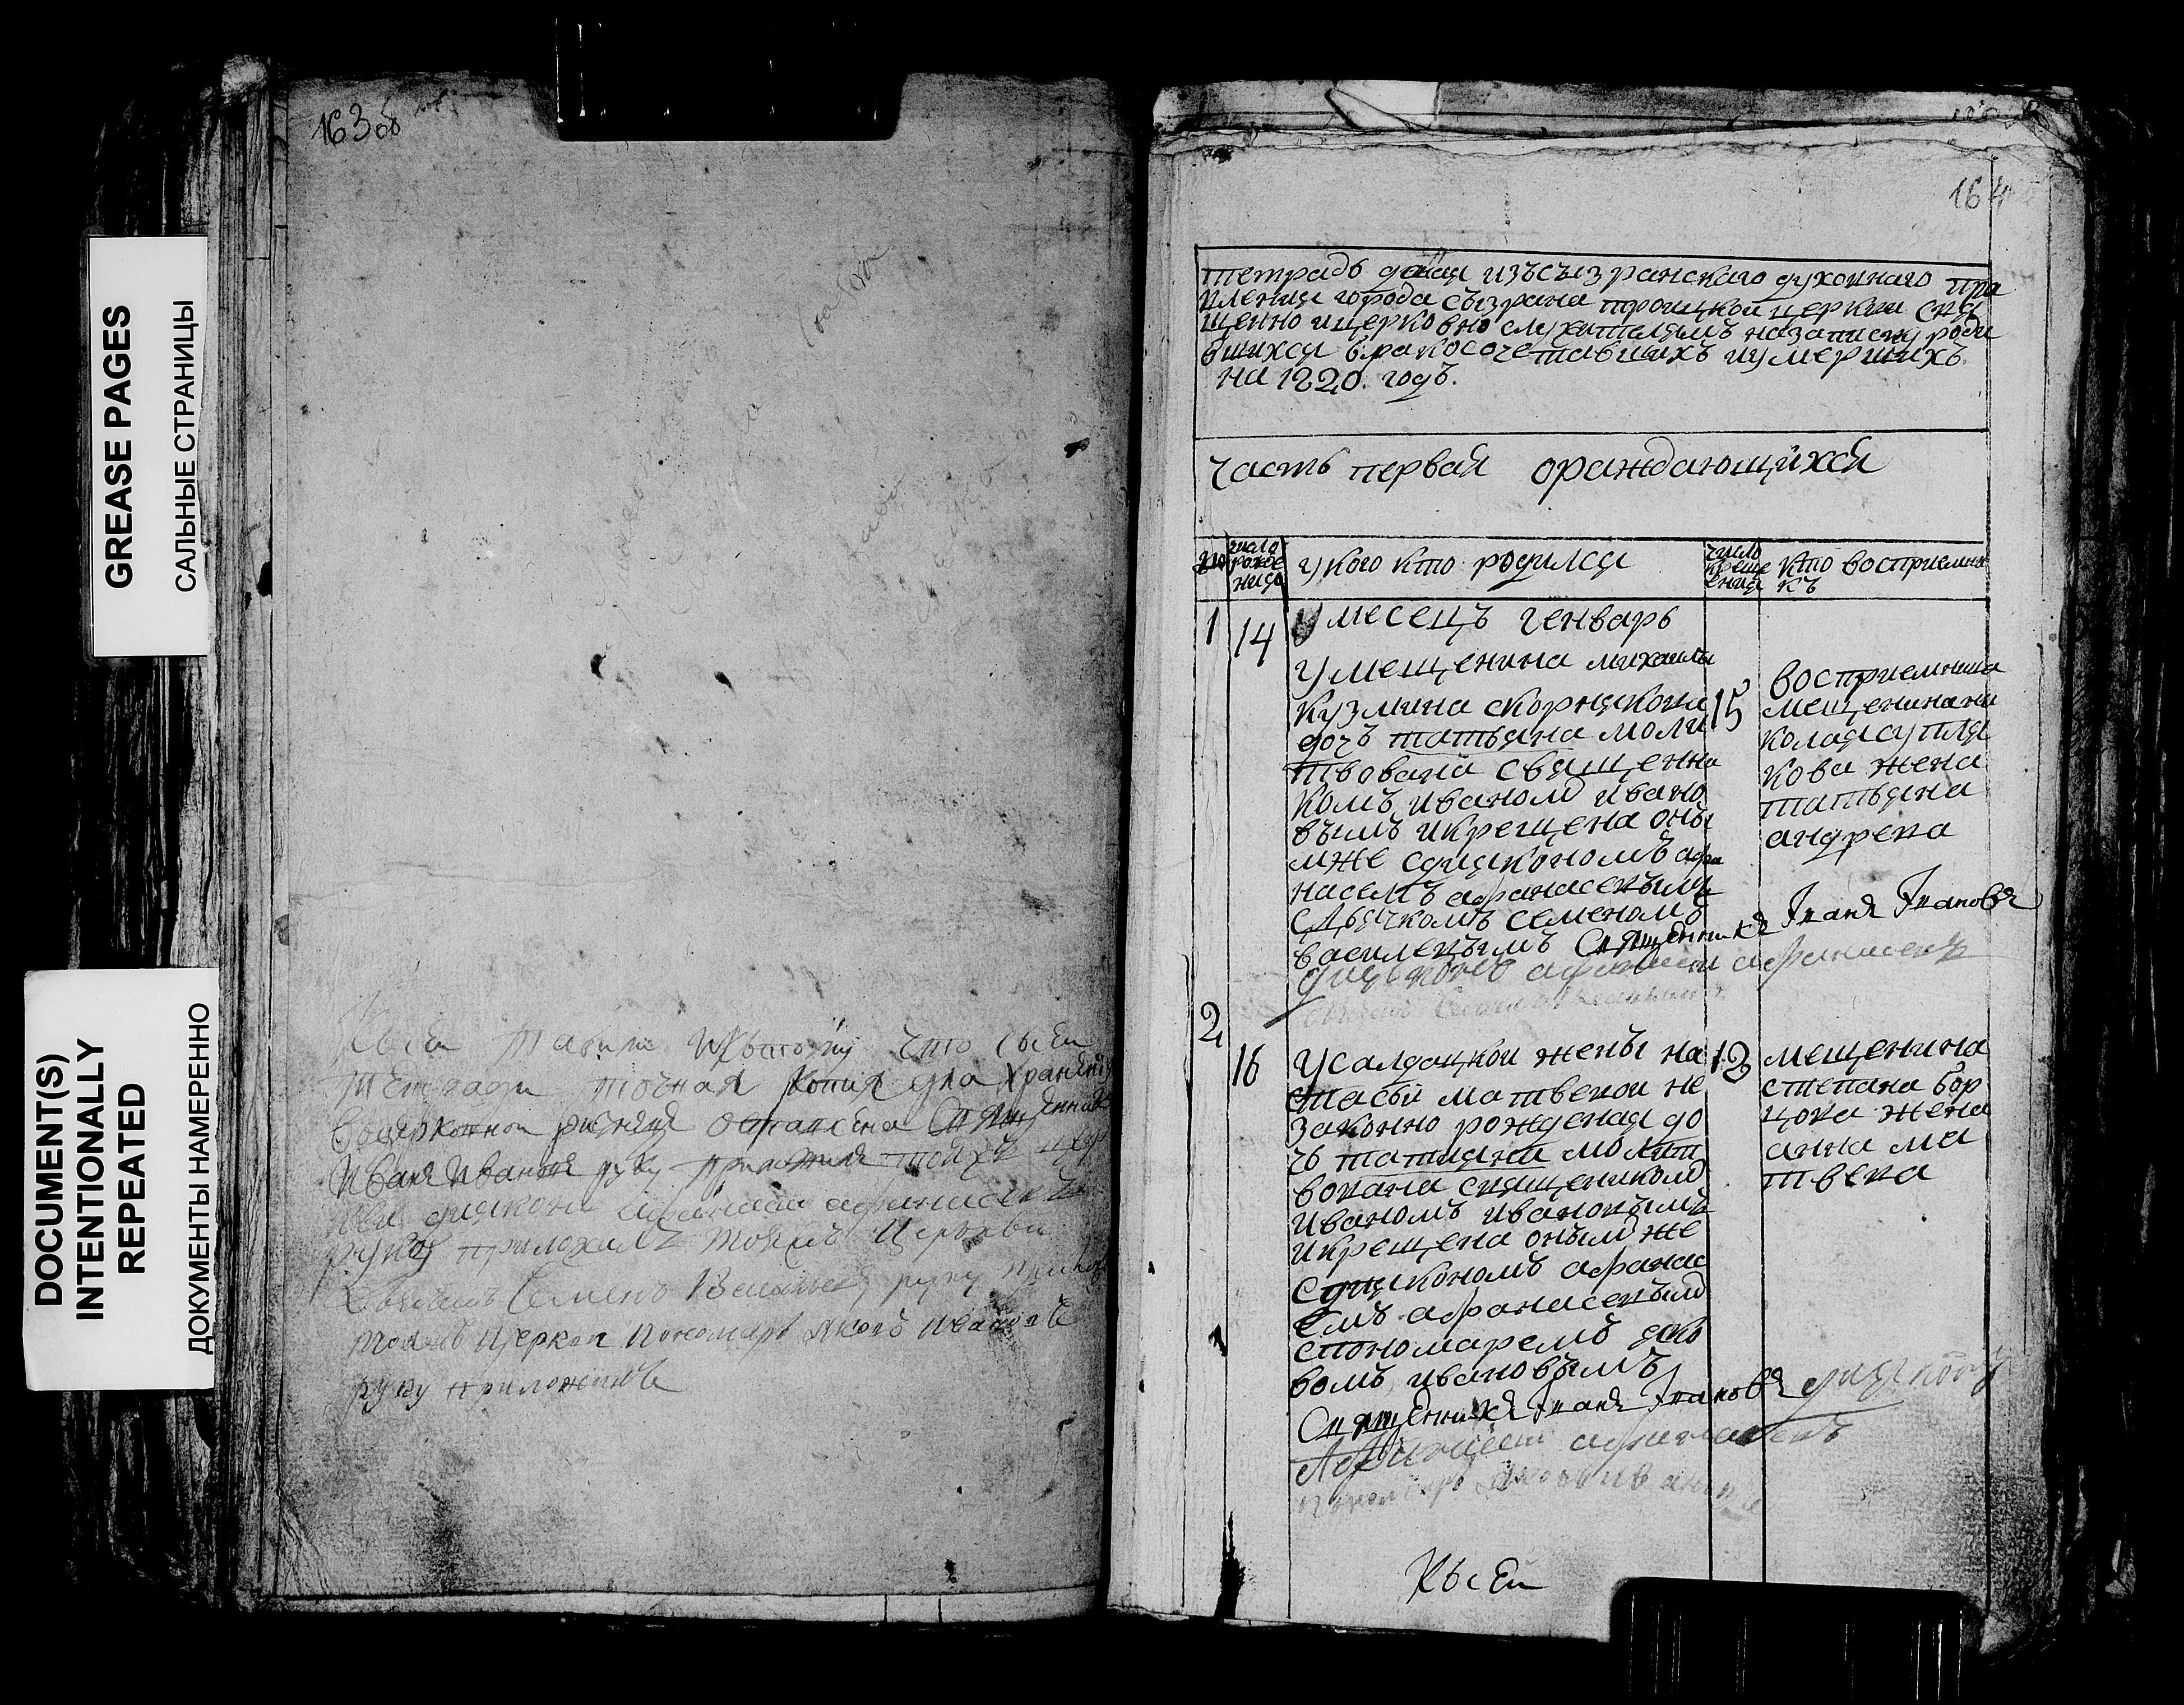 GREASE PAGES
САЛЬНЫЕ СТРАНИЦЫ
DOCUMENT(S)
INTENTIONALLY
REPEATED
ДОКУМЕНТЫ НАМЕРЕННО
163об
Къ сей что къ сей
тетради точная копия для хранения
в церковной ризнице оставлена Священник
Иванъ Ивановъ руку приложил тойже цер
диаконъ афанасеи афанасьевъ
руку приложилъ тоеже церкви
Семенъ Васильев руку
тоежъ церкви пономарь Яковъ Ивановъ
руку приложилъ
164
тетрадь даная изъ сызранского духовного пра
вления города сызрана троицкой церкви свя
щенно и церковно служителямъ на записку роди
вшихся бракосочетавшихъ и умершихъ
на 1820. годъ.
часть первая ораждающихся
число рожде ния
у кого кто родился
число креще ения
кто восприемни къ
1
14
месецъ генварь
у мещенина михаилы
кузмина скорнякова
дочь татьяна моли
твована священни
комъ иваном ивано
вымъ и крещена оны
мже с диякономъ афа
насемъ афанасевымъ
с дьячкомъ семеномъ
василевымъ Священникъ Iванъ Iвановъ
диаконъ афанасеи афанасевъ
15
восприемница
мещенина ни
колая супля
кова жена
татьяна
андрева
2
16
у салдацкой жены на
стасьи матвевой не
законно рожденая до
чь татияна молит
вована священиком
иваномъ ивановымъ
и крещена оным же
с дияконом афанас
емъ афанасевым
с пономаремъ яко
вомъ ивановымъ
Священникъ Iванъ Iвановъ диякон
Афанасеи афанасевъ
пономарь Яковъ Ивановъ
мещенина
степана бор
цова жена
анна ма
твева
Къ сей